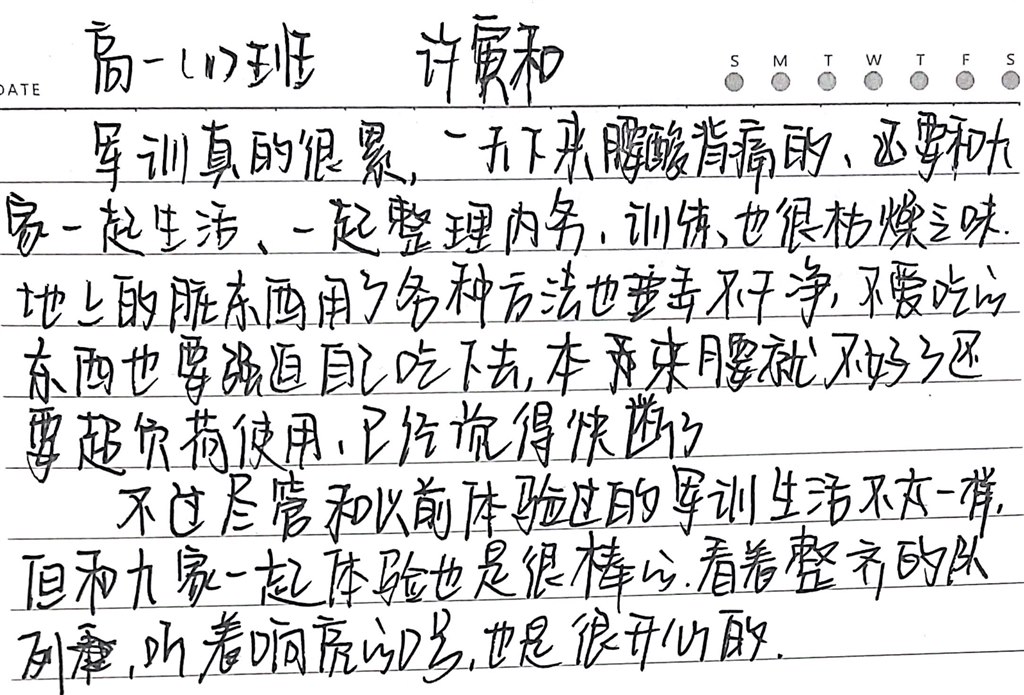 高一(1)班 许寅和
DATE S M T W T F S
军训真的很累,一天下来腰酸背痛的、还要和大
家一起生活、一起整理内务、训练、也很枯燥乏味.
地上的脏东西用了各种方法也弄不干净,不爱吃的
东西也要强迫自己吃下去,本来腰就不好了还
要超负荷使用、已经觉得快断了
不过尽管和以前体验过的军训生活不太一样,
但和大家一起体验也是很棒的.看着整齐的队
列,听着响亮的口号,也是很开心的.